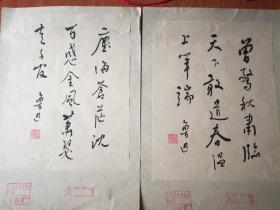 曾驚秋肅臨
天下敢遣春溫
上筆端
魯迅
塵海蒼茫沈
百感金風蕭瑟
走千官
魯迅